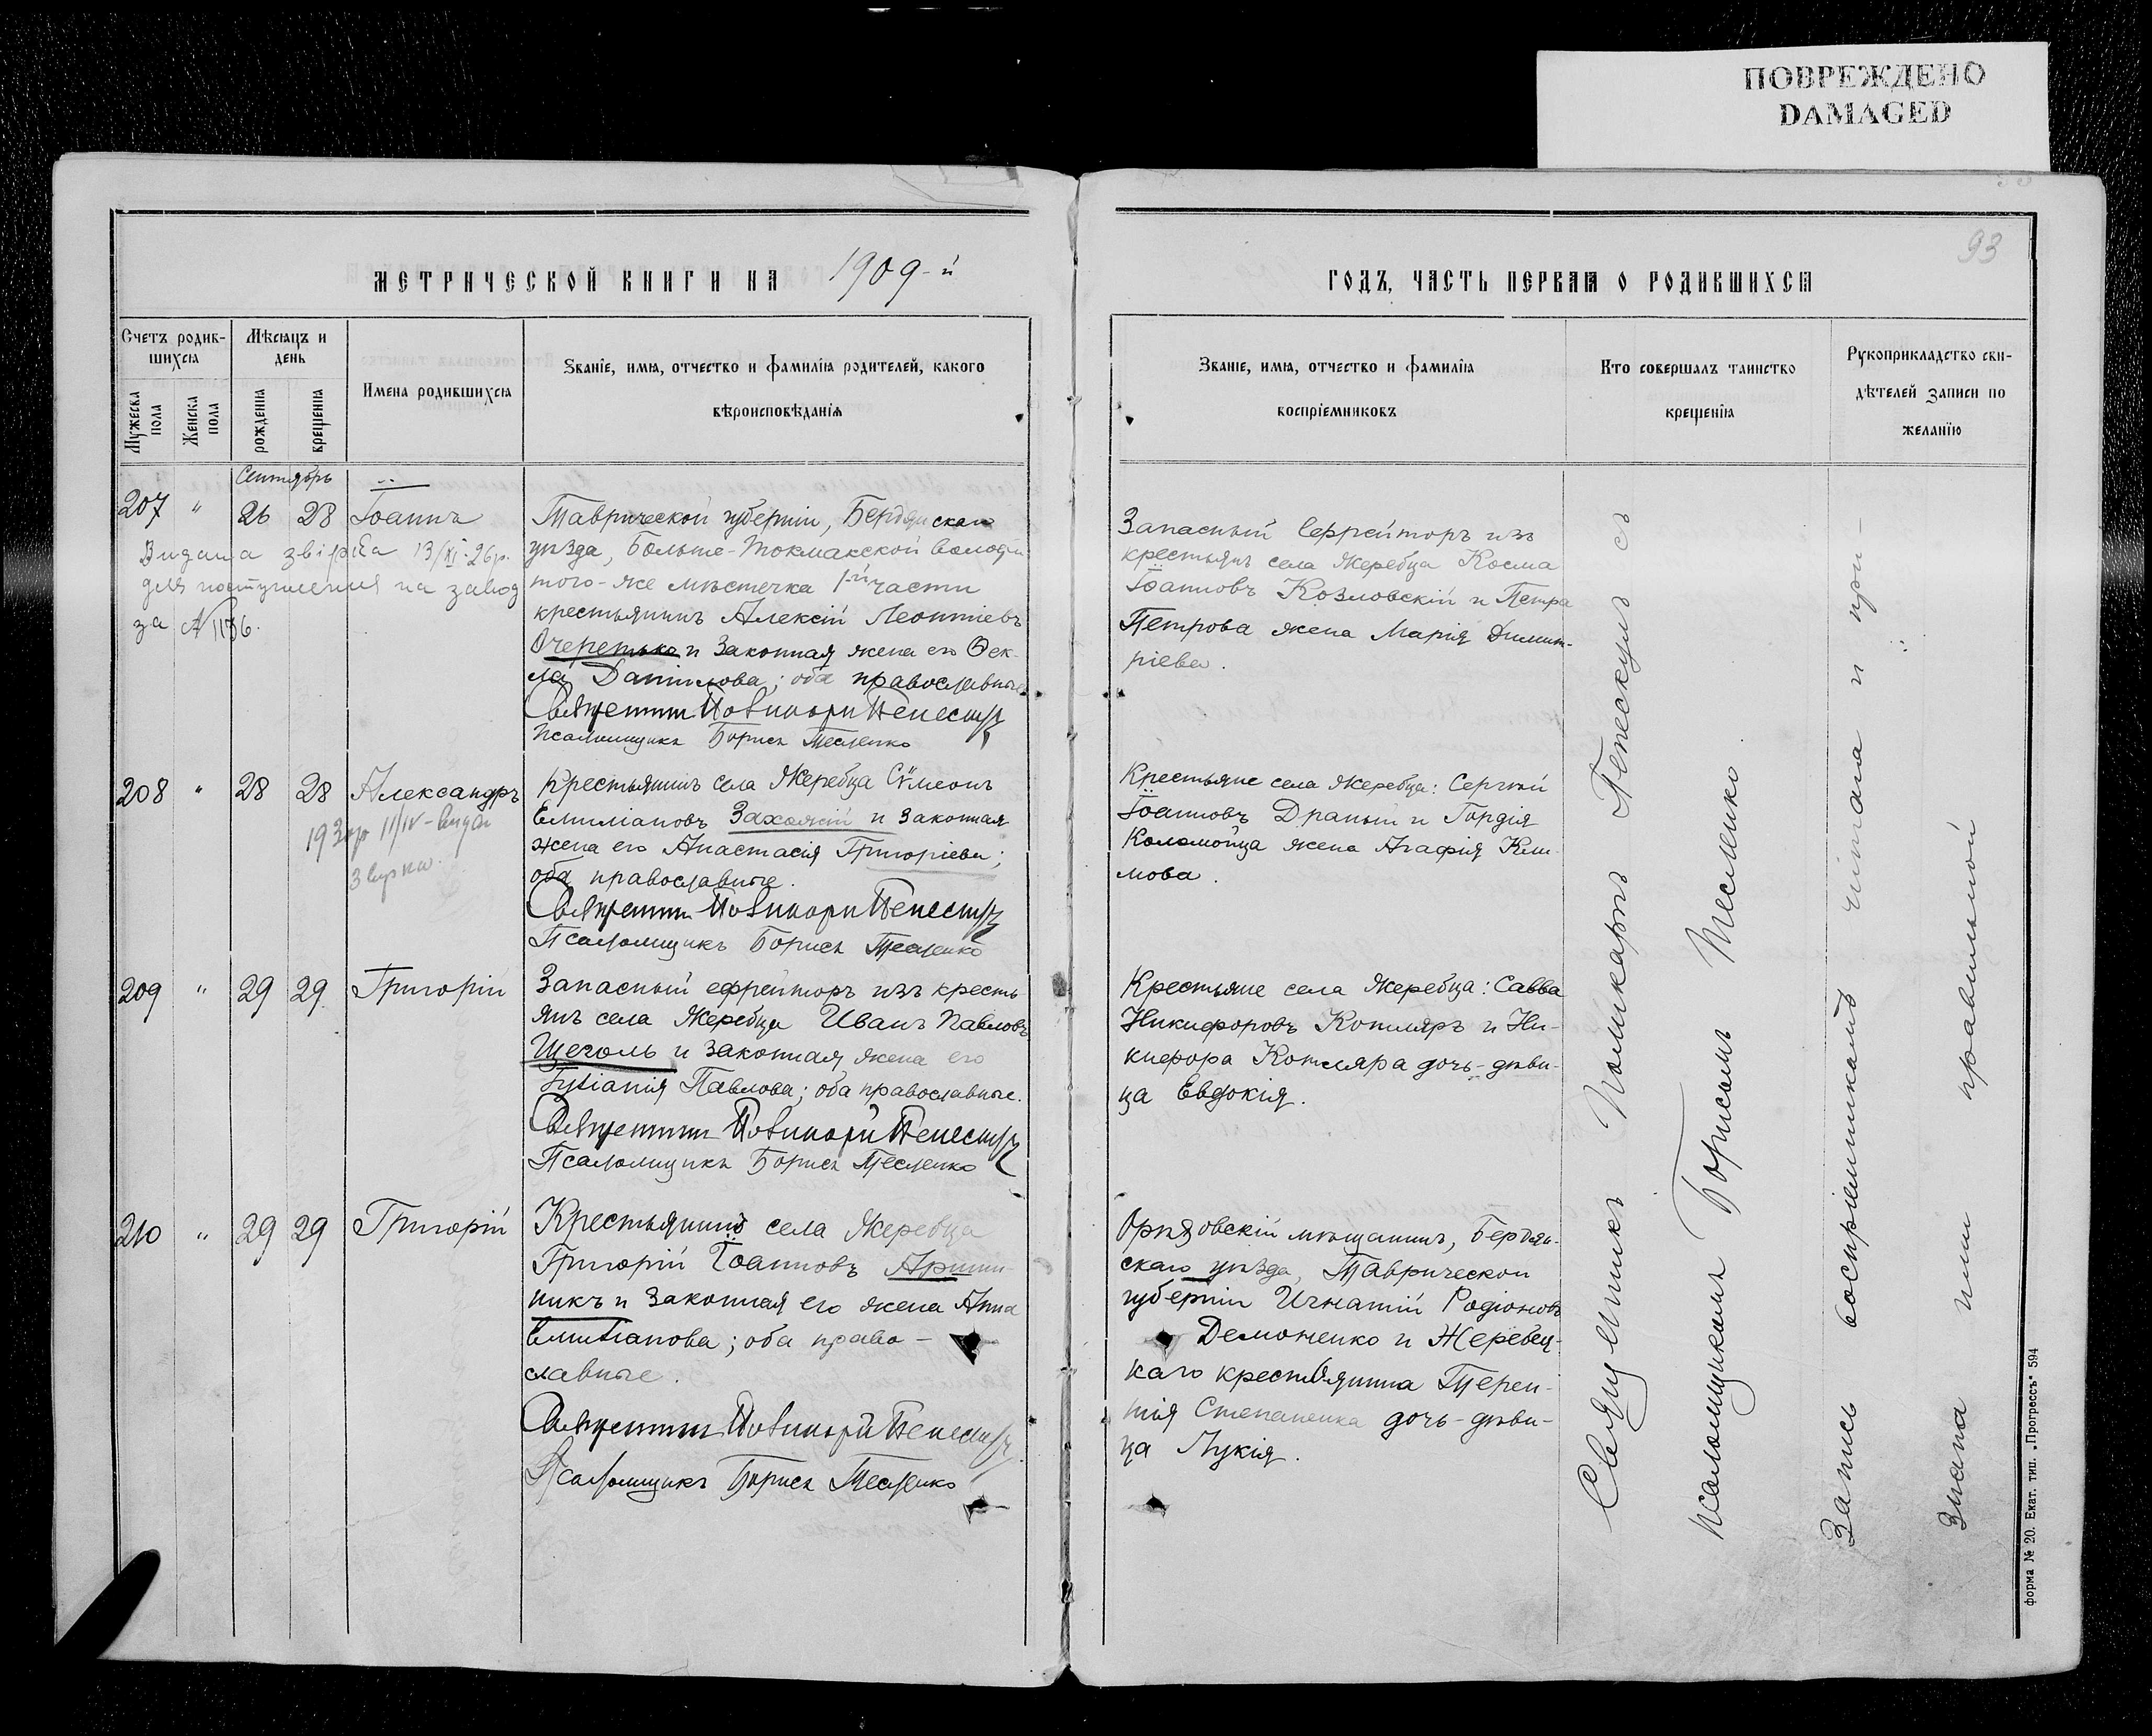 ПОВРЕЖДЕНО
DAMAGED
93
МЕТРИЧЕСКОЙ КНИГИ НА 1909-й
Счетъ родив-
шихся
Мужеска пола
Женска пола
Мѣсяцъ и
день
рожденія
крещенія
Имена родившихся
Званіе, имя, отчество и фамилія родителей, какого
вѣроисповѣданія
Сентябрь
207 " 26 28 Іоаннъ
Видана звірка 13/XI-26р.
для поступления на завод
за № 1136.
Таврической губерніи, Бердянскаго
уѣзда, Больше-Токмакской волости
того-же мѣстечка 1-й части
крестьянинъ Алексій Леонтіевъ
Очеретько и законная жена его Ѳек-
ла Даниилова; оба православные
Священникъ Поликарпъ Пенескулъ
Псаломщикъ Борисъ Тесленко
208 " 28 28 Александръ
193 р 11/IV - видан
звірка
Крестьянинъ села Жеребца Сѵмеонъ
Емиліановъ Захожій и законная
жена его Анастасія Григоріева;
оба православные.
Священникъ Поликарпъ Пенескулъ
Псаломщикъ Борисъ Тесленко
209 " 29 29 Григорій
Запасный ефрейторъ изъ кресть-
янъ села Жеребца Иванъ Павловъ
Щеголь и законная жена его
Іуліанія Павлова; оба православные.
Священникъ Поликарпъ Пенескулъ
Псаломщикъ Борисъ Тесленко
210 " 29 29 Григорій
Крестьянинъ села Жеребца
Григорій Іоанновъ
никъ и законная его жена Анна
Емиліанова; оба право-
славные.
Священникъ Поликарпъ Пенескулъ
Псаломщикъ Борисъ Тесленко
ГОДЪ, ЧАСТЬ ПЕРВАЯ О РОДИВШИХСЯ
Званіе, имя, отчество и фамилія
воспріемниковъ
Кто совершалъ таинство
крещенія
Рукоприкладство сви-
дѣтелей записи по
желанію
Запасный Ефрейторъ изъ
крестьянъ села Жеребца Косма
Іоанновъ Козловскій и Петра
Петрова жена Марія Димит-
ріева.
Крестьяне села Жеребца: Сергѣй
Іоанновъ Драный и Гордія
Коломойца жена Агафія Кли-
мова.
Крестьяне села Жеребца: Савва
Никифоровъ Котляръ и Ни-
кифора Котляра дочь-дѣви-
ца Евдокія.
Орѣховскій мѣщанинъ, Бердян-
скаго уѣзда, Таврической
губерніи Игнатій Родіоновъ
Демоненко и Жеребец-
каго крестьянина Терен-
тія Степаненка дочь-дѣви-
ца Лукія.
Священникъ Поликарпъ Пенескулъ съ
псаломщикомъ Борисомъ Тесленко
Запись воспріемникамъ читана и при-
знана ими правильной
форма № 20. Екат. тип. „Прогрессъ" 594